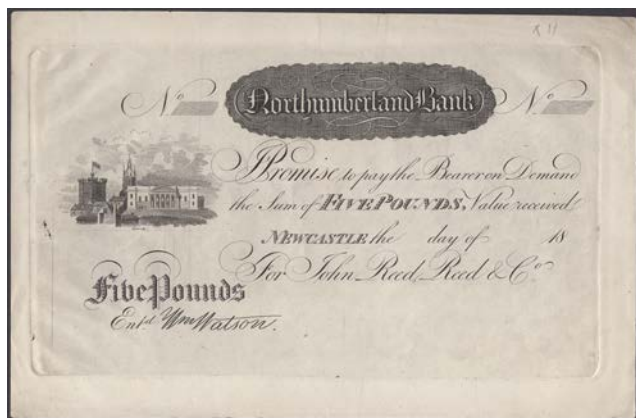 No Northumberland Bank No
I Promise to pay the Bearer on Demand
the Sum of FIVE POUNDS, Value received
NEWCASTLE the day of 18
For John Reed, Reed & Co.
Five Pounds
Entd Wm Watson.